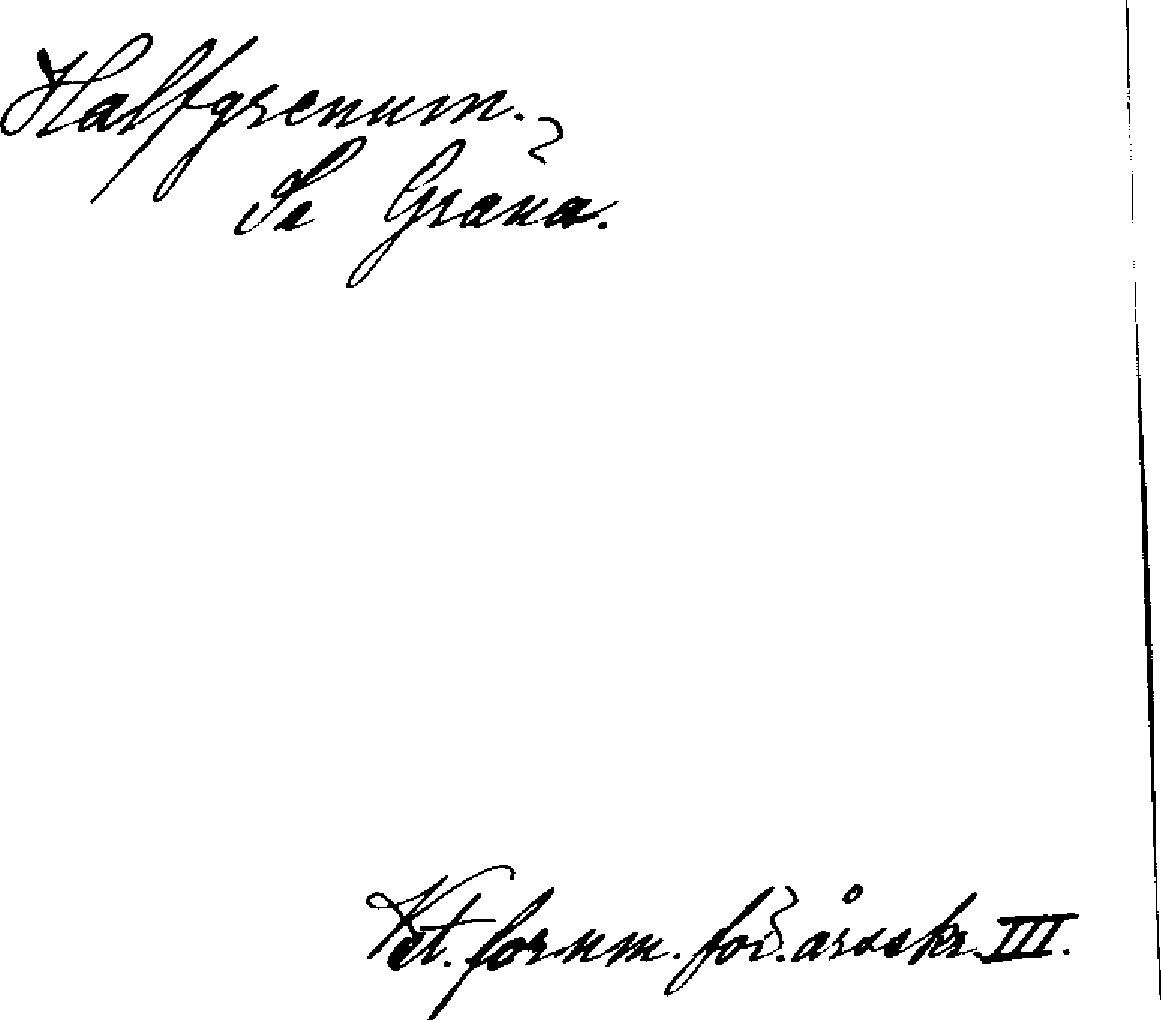 Halfgrenum.
Se Gräna.
Vet. fornm. för. årsskr. III.